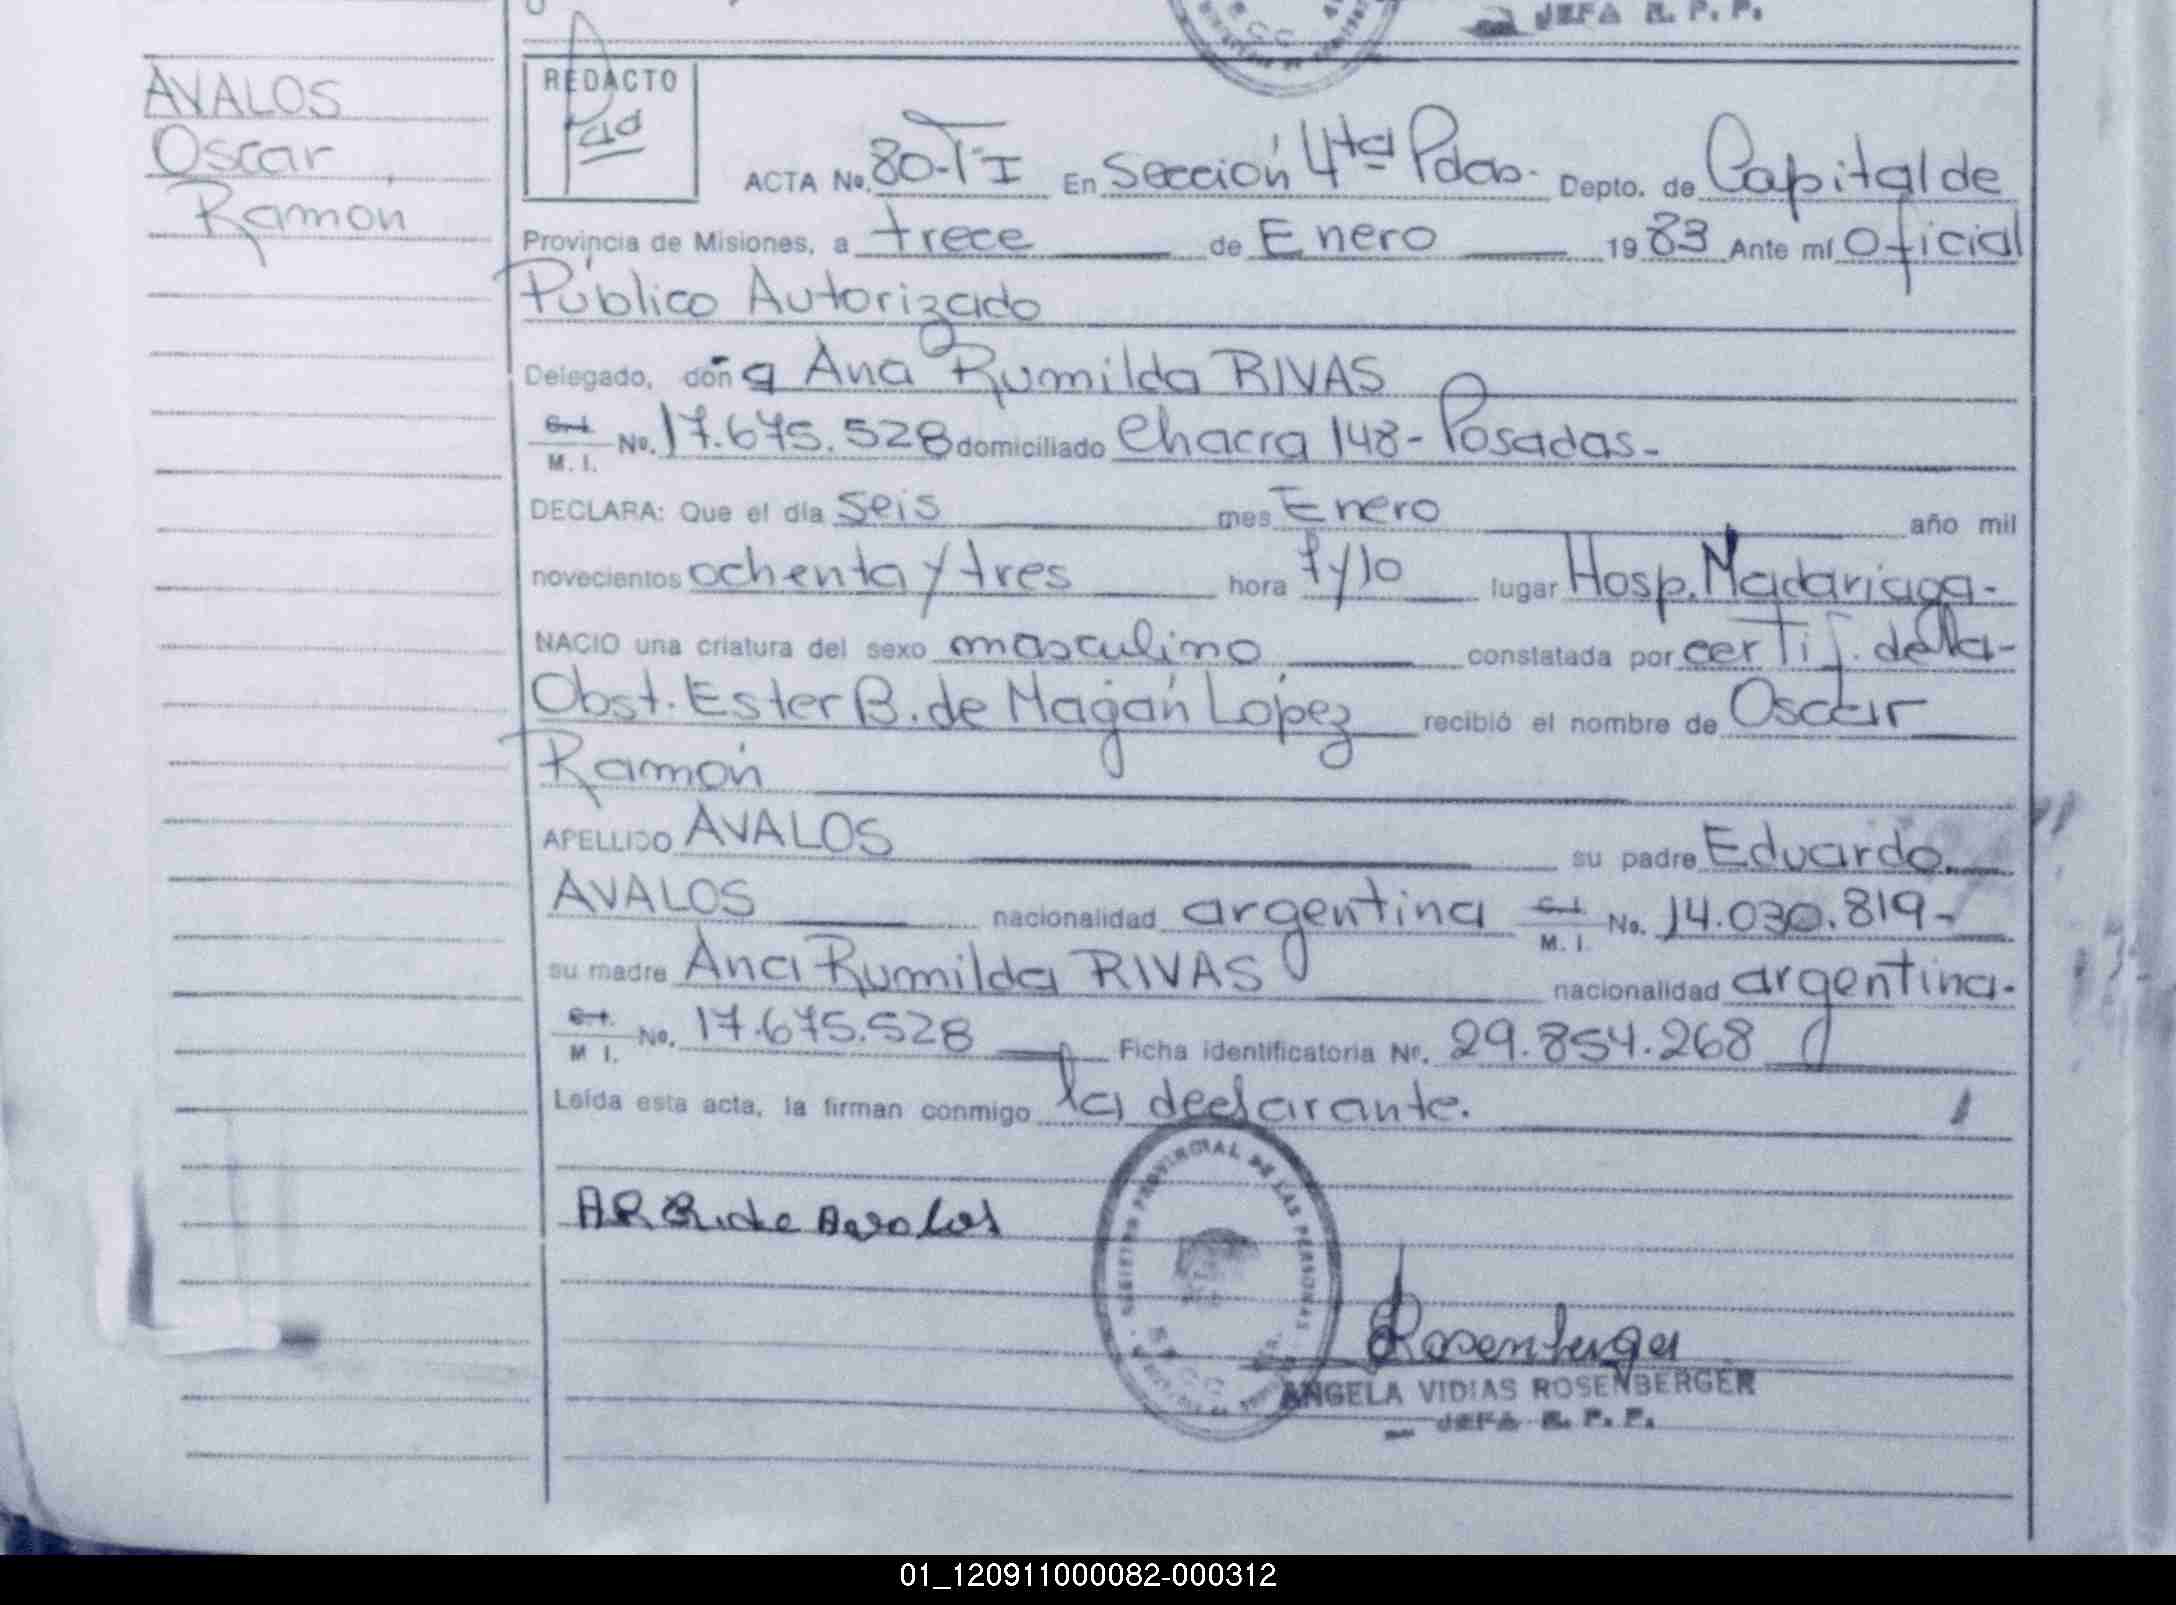 JEFA R. P. P.
AVALOS
Oscar
Ramón
REDACTO
ACTA No. 80-T°I En Sección 4ta Pdas. Depto. de Capital de
Provincia de Misiones, a trece de Enero 1983 Ante mí Oficial
Público Autorizado
Delegado, doña Ana Rumilda RIVAS
C.I. M. I. No. 17.675.528 domiciliado Chacra 148 - Posadas -
DECLARA: Que el día seis mes Enero año mil
novecientos ochenta y tres hora 7 y 10 lugar Hosp. Madariaga -
NACIO una criatura del sexo masculino constatada por certif. de la -
Obst. Ester B. de Magán López recibió el nombre de Oscar
Ramón
APELLIDO AVALOS su padre Eduardo
AVALOS nacionalidad argentina C.I. M. I. No. 14.030.819 -
su madre Ana Rumilda RIVAS nacionalidad argentina.
C.I. M I. No. 17.675.528 Ficha identificatoria Nº. 29.854.268
Leída esta acta, la firman conmigo la declarante.
PROVINCIAL DE LAS PERSONAS
Rosenberger
ANGELA VIDIAS ROSENBERGER
JEFA R. P. P.
01_120911000082-000312